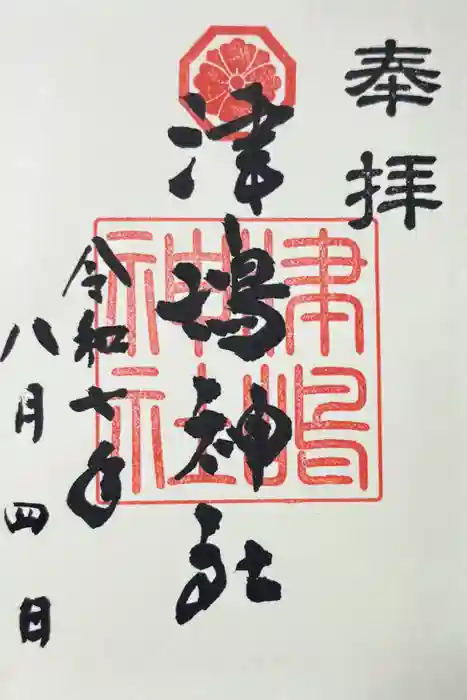 奉拝
津嶋神社
津嶋
神社
令和六年
八月四日